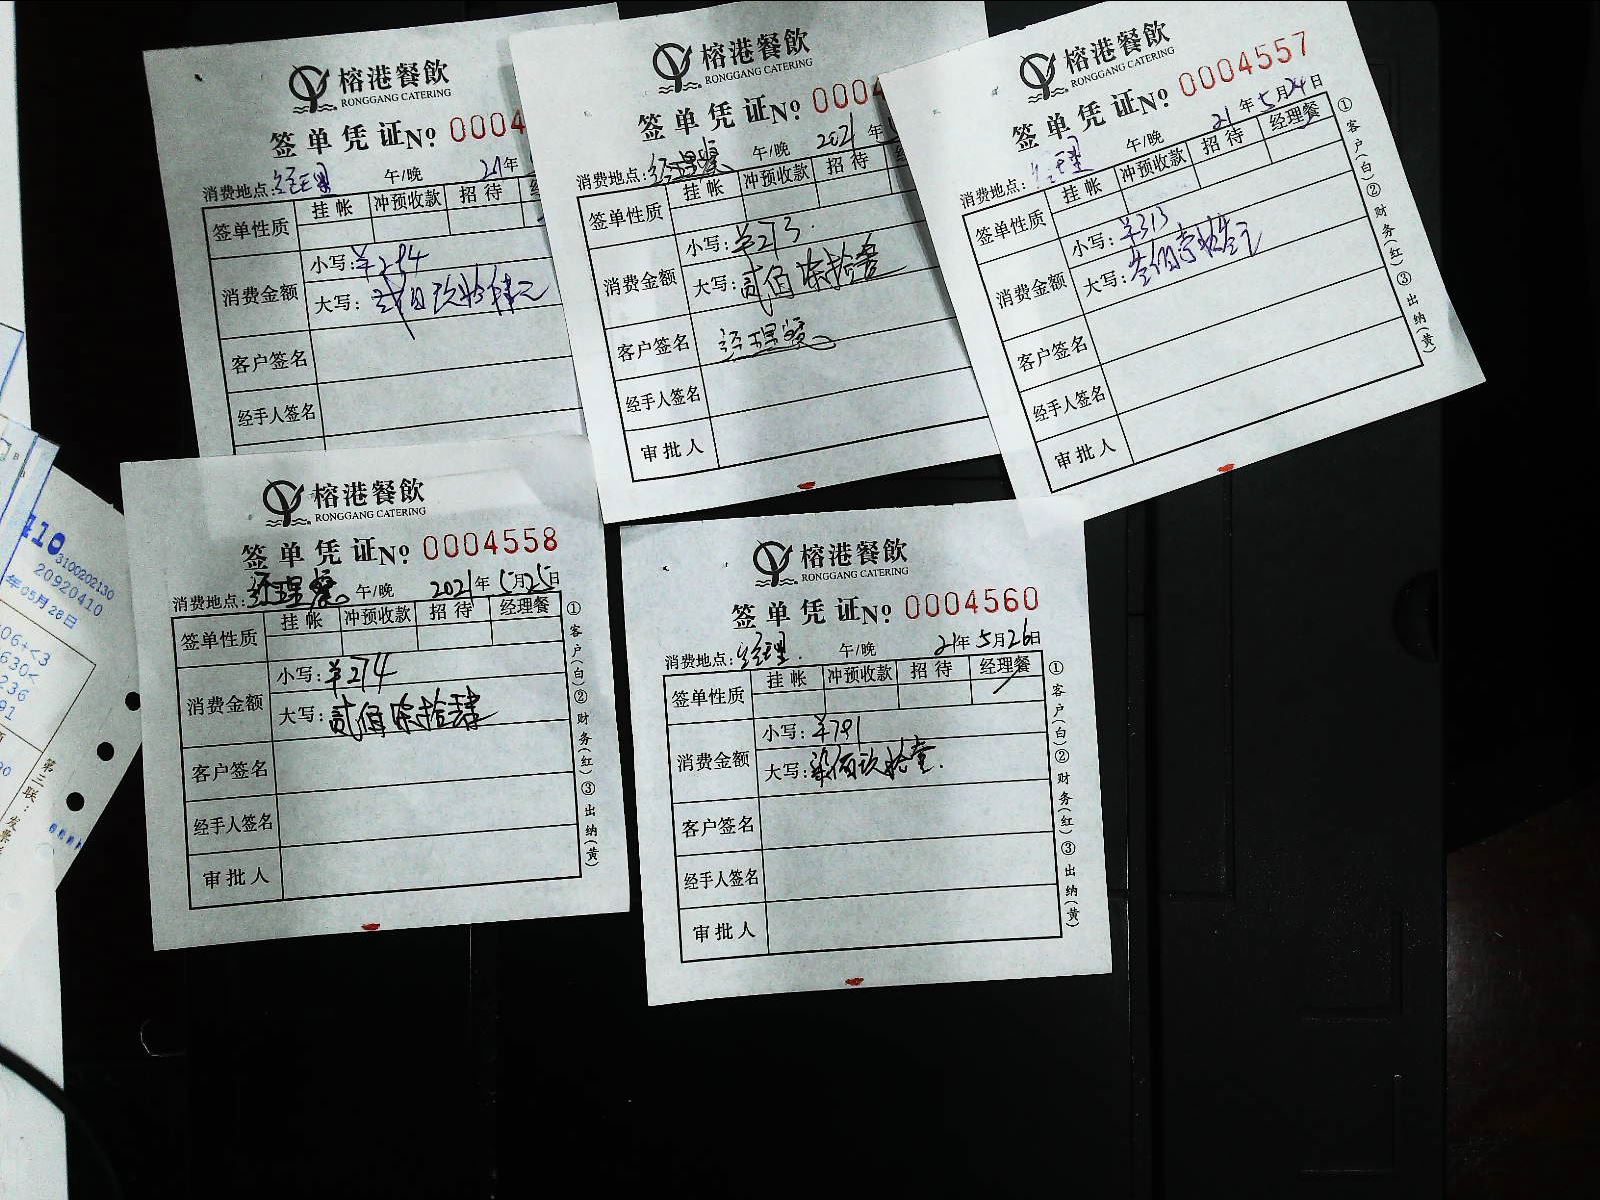 榕港餐飲
RONGGANG CATERING
签单凭证№ 0004
消费地点:经理 午/晚 21年
签单性质 挂帐 冲预收款 招待
消费金额 小写:¥294
大写:贰佰玖拾肆元
客户签名
经手人签名
榕港餐飲
RONGGANG CATERING
签单凭证№ 0004
消费地点:经理餐 午/晚 2021年
签单性质 挂帐 冲预收款 招待
消费金额 小写:¥273.
大写:贰佰柒拾叁
客户签名 经理餐
经手人签名
审批人
榕港餐飲
RONGGANG CATERING
签单凭证№ 0004557
消费地点:经理 午/晚 21年5月24日
签单性质 挂帐 冲预收款 招待 经理餐
消费金额 小写:¥313
大写:叁佰壹拾叁元
客户签名
经手人签名
审批人
①客户(白)②财务(红)③出纳(黄)
榕港餐飲
RONGGANG CATERING
签单凭证№ 0004558
消费地点:经理餐。 午/晚 2021年5月25日
签单性质 挂帐 冲预收款 招待 经理餐
消费金额 小写:¥274
大写:贰佰柒拾肆
客户签名
经手人签名
审批人
①客户(白)②财务(红)③出纳(黄)
榕港餐飲
RONGGANG CATERING
签单凭证№ 0004560
消费地点:经理. 午/晚 21年5月26日
签单性质 挂帐 冲预收款 招待 经理餐
消费金额 小写:¥791
大写:柒佰玖拾壹.
客户签名
经手人签名
审批人
①客户(白)②财务(红)③出纳(黄)
410
3100202130
20920410
年05月28日
06+<3
630<
236
91
第三联:发票